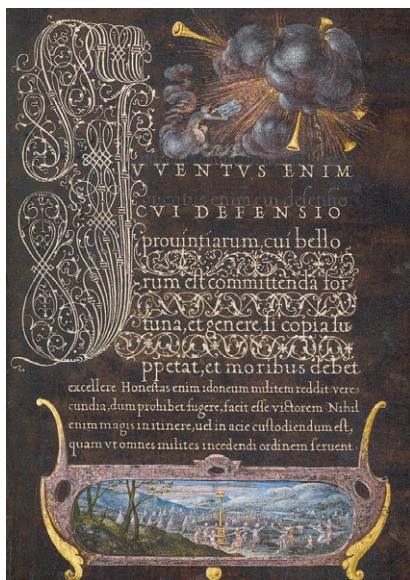 IVVENTVS ENIM
CVI DEFENSIO
prouintiarum, cui bello
rum est committenda for
tuna, et genere, si copia su
ppetat, et moribus debet
excellere Honestas enim idoneum militem reddit. vere
cundia, dum prohibet fugere, facit esse victorem Nihil
enim magis in itinere, uel in acie custodiendum est,
quam vt omnes milites incedendi ordinem seruent.